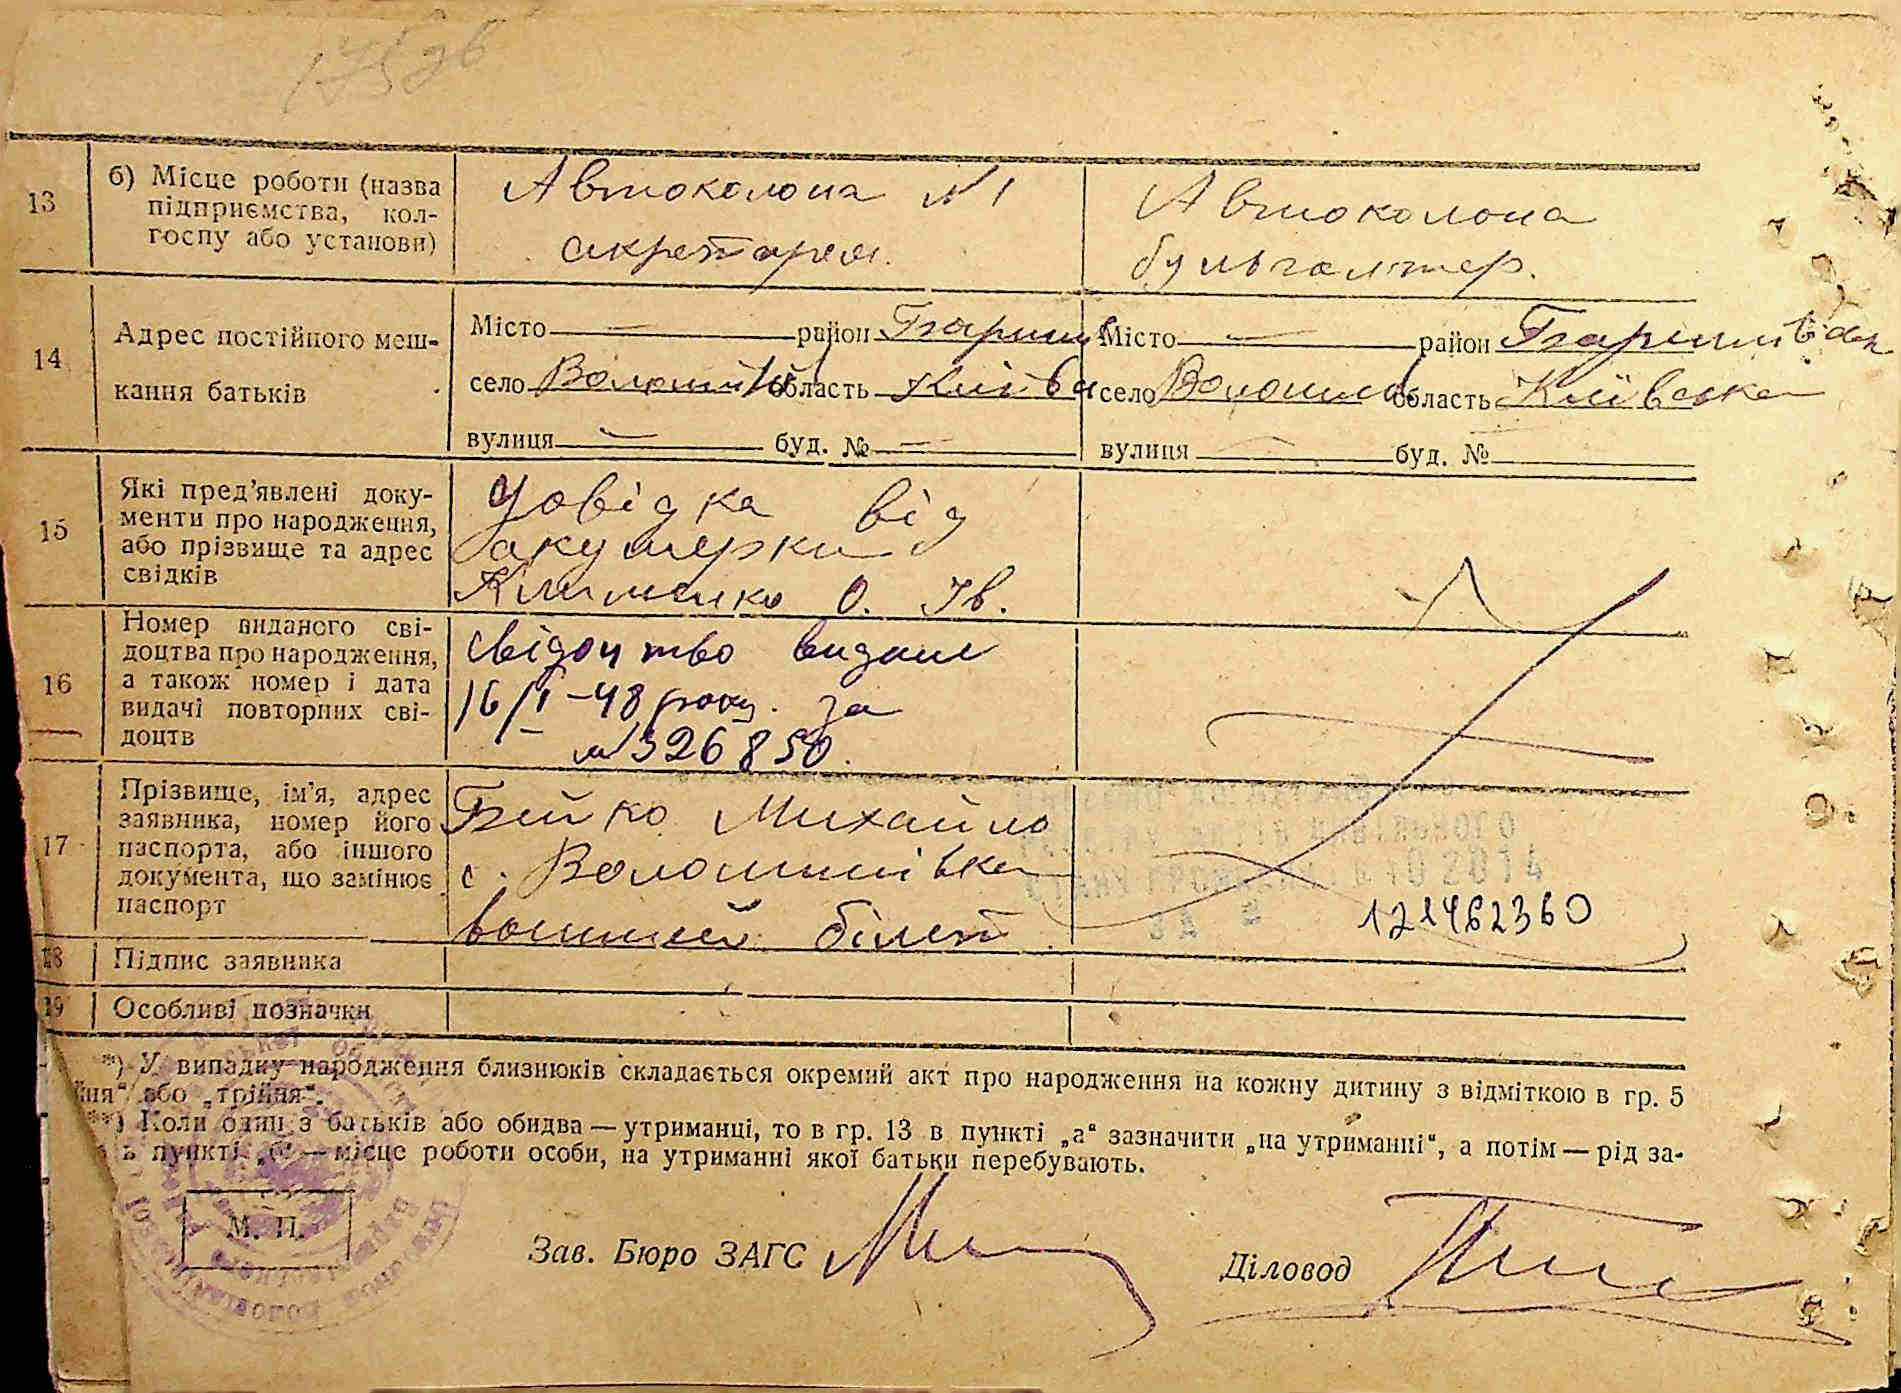 13
б) Місце роботи (назва
підприємства, кол-
госпу або установи)
Автоколона №1
секретарем.
Автоколона
бульгалтер.
14
Адрес постійного меш-
кання батьків
Місто — район Баришів
село Волошинів область Київськ
вулиця — буд. № —
Місто — район Баришівськ
село Волошинів область Київська
вулиця — буд. №
15
Які пред’явлені доку-
менти про народження,
або прізвище та адрес
свідків
Довідка від
акушерки
Клименко О. Ів.
16
Номер виданого сві-
доцтва про народження,
а також номер і дата
видачі повторних сві-
доцтв
свідоцтво видане
16/I-48 року. за
№326850.
17
Прізвище, ім’я, адрес
заявника, номер його
паспорта, або іншого
документа, що замінює
паспорт
Бойко Михайло
с. Волошинівка
воєнний білет
АКТІВ ЦИВІЛЬНОГО
СТАНУ ГРОМАДЯН 10 2014
ЗА №
121462360
18
Підпис заявника
19
Особливі позначки
*) У випадку народження близнюків складається окремий акт про народження на кожну дитину з відміткою в гр. 5
або „трійня“.
**) Коли один з батьків або обидва — утриманці, то в гр. 13 в пункті „а“ зазначити „на утриманні“, а потім — рід за-
в пункті „б“ — місце роботи особи, на утриманні якої батьки перебувають.
М. П.
Зав. Бюро ЗАГС
Діловод